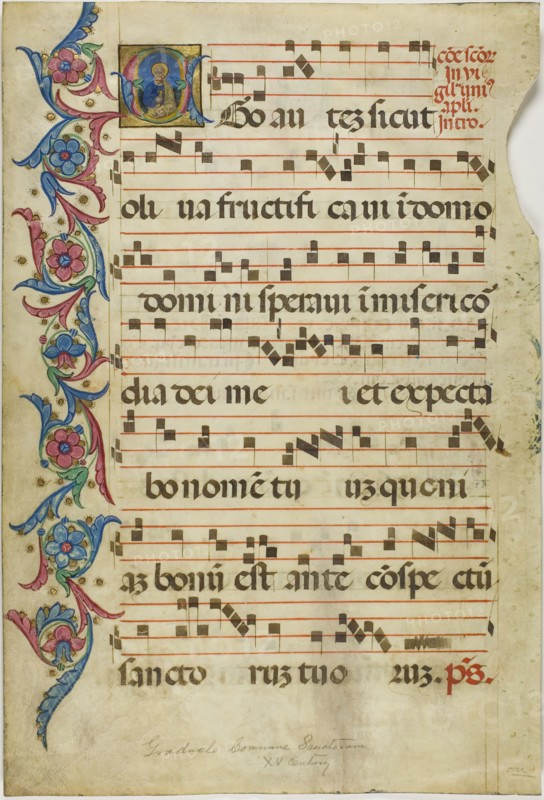 cõe scõꝝ
In vi
gil' uniꝰ
apli.
Intro.
EGo au teʒ sicut
oli ua fructifi caui ĩ domo
domi ni speraui ĩ misericõ
dia dei me i et expecta
bo nomẽ tu uʒ quoni
aʒ bonũ est ante cõspe ctũ
sancto ruʒ tuo ruʒ. p̃s.
Graduale Commune Sanctorum
XV Century